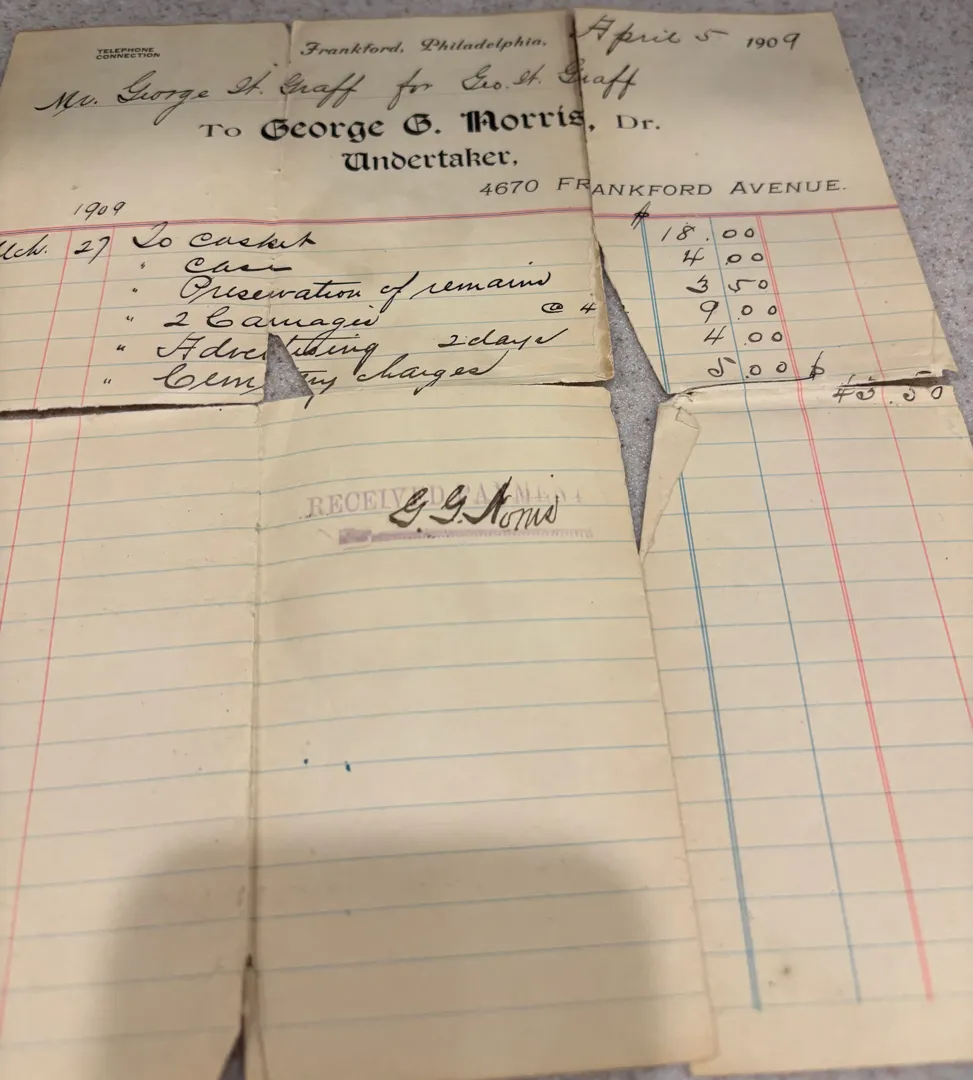 TELEPHONE CONNECTION
Frankford, Philadelphia, April 5 1909
Mr. George H. Graff for Geo. H. Graff
To George G. Norris, Dr.
Undertaker,
4670 FRANKFORD AVENUE.
1909 $
Mch. 27 To casket 18.00
" Case 4 00
" Preservation of remains 3 50
" 2 Carriages @ 4 9.00
" Advertising 2 days 4.00
" Cemetry charges 5.00 $
43.50
RECEIVED PAYMENT
G. G. Norris